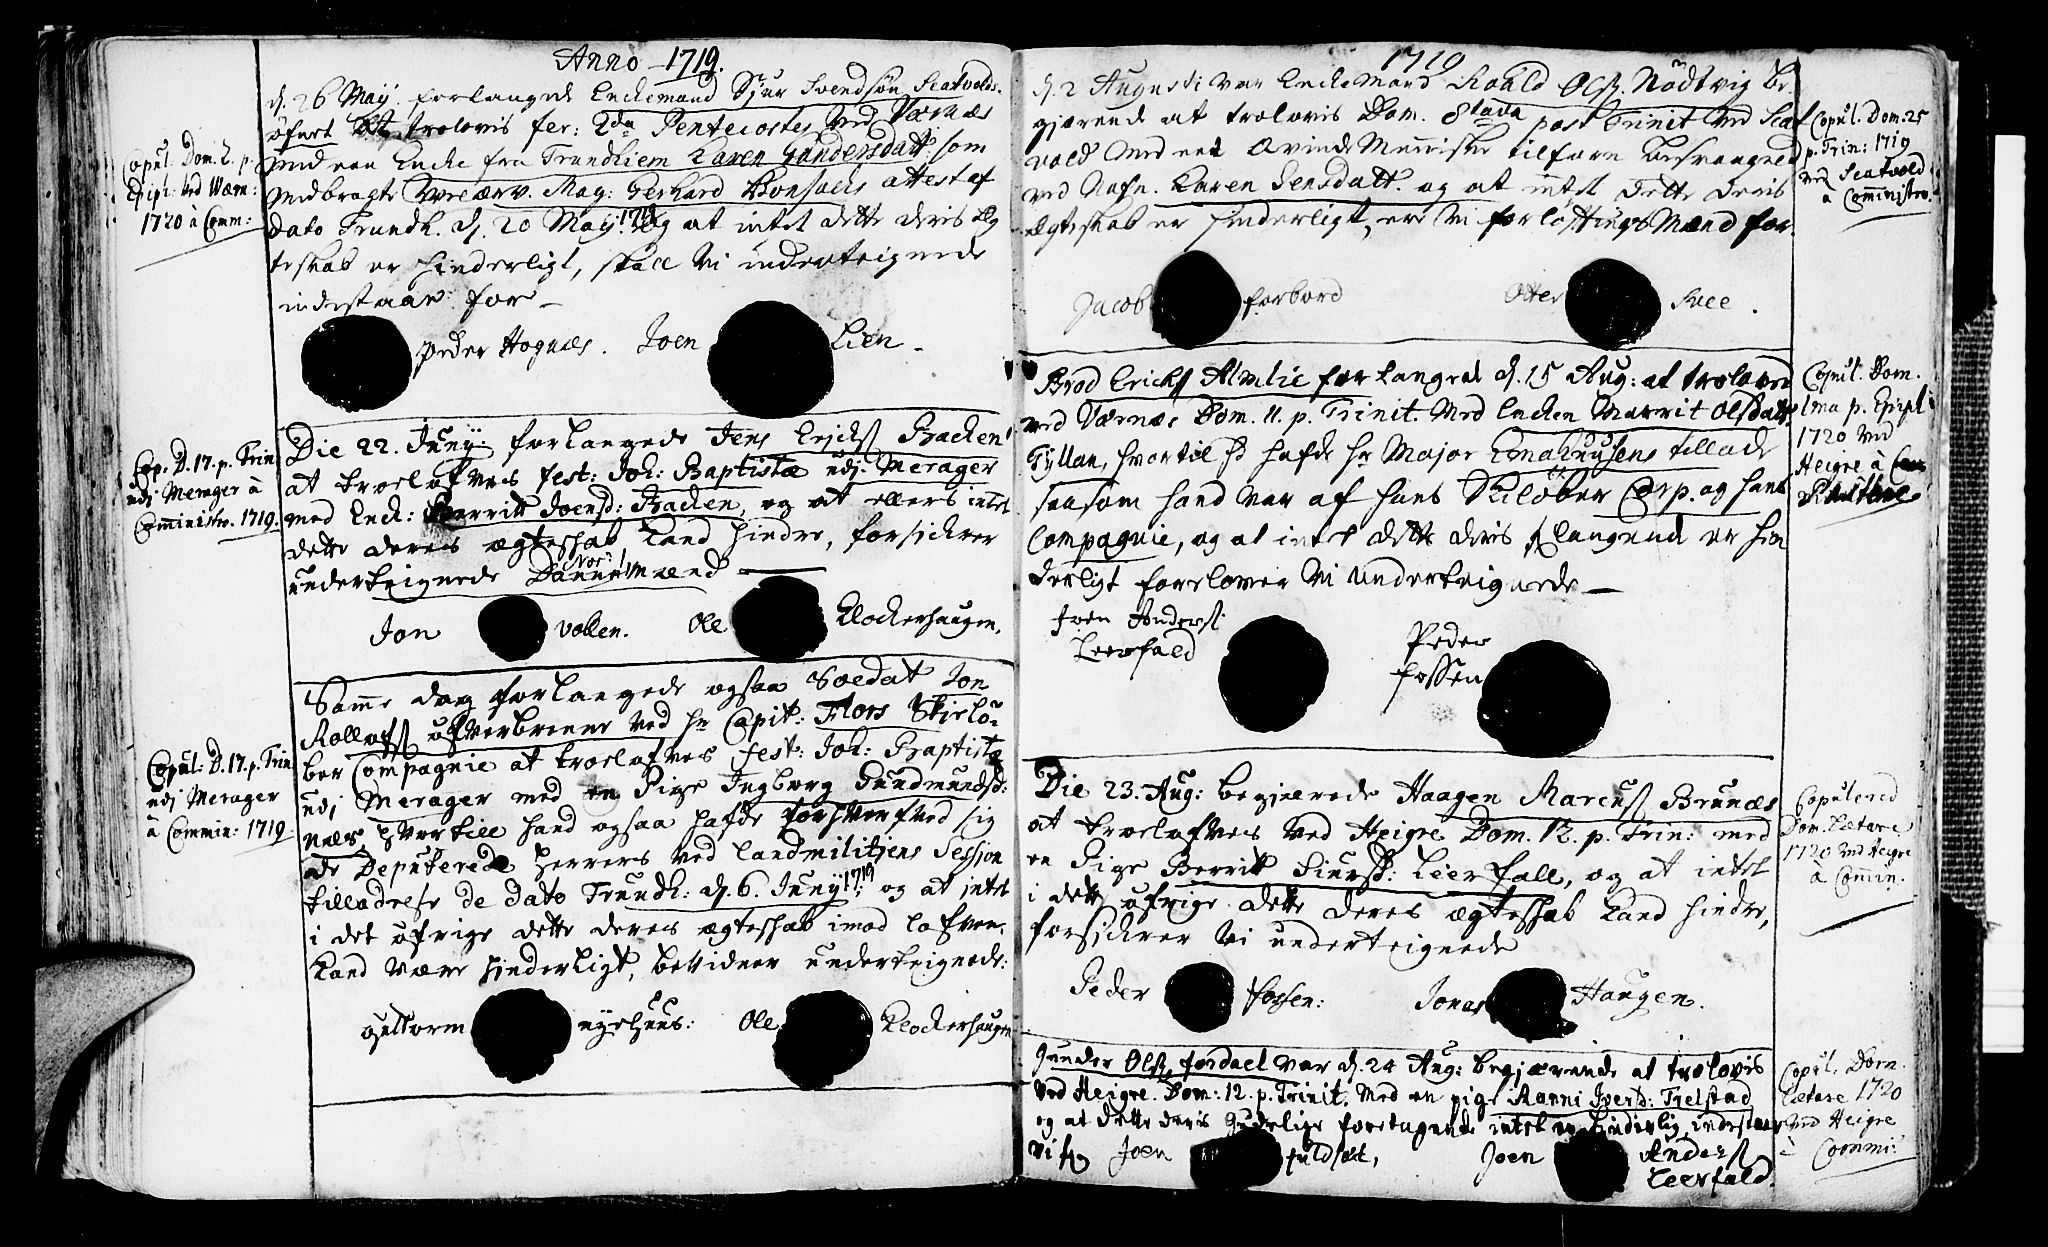 Anno 1719.
d. 26 Maij forlangede Enckemand Sjur Svendsøn Scatvolds-
øfert at trolovis fer: 2da Pentecostes ved Værnæs
med een Encke fra Trundhiem Karen Gundersdatt: som
medbragte Velærv. Mag: Gerhard Bonsachs attest af
dato Trundh. d. 20 Maij 1719. og at intet dette deris Æg
teskab er hinderligt, skall vi underteignede
indestaae for —
Peder Hognæs. Joen Lien.
Copul. Dom. 2. p.
Epiph: ved Wærn:
1720 à Comm:
Die 22. Junij forlangede Jens Ericks. Backen
at troelofves fest: Joh: Baptistæ udj Merager
med Enck: Berritt Joensd: Backen, og at ellers intet
dette deres ægteskab kand hindre, forsickrer
underteignede Dannemænd
Jon vollen. Ole Klockerhaugen.
Cop. D. 17. p. Trin
udj Merager à
Comministro. 1719.
Samme dag forlangede ogsaa Soldat Jon
Rollofs. ufverbrenne ved hr Capit: Flors Skielö-
ber Compagnie at troelofves fest: Joh: Baptistæ
udj Merager med en Pige Ingborg Gundmundsd:
næs, hvortill hand ogsaa hafde forhverfved sig
de Deputerede Herrers ved Landmilitsens Session
tilladelse de dato Trundh: d. 6. Junij 1719 og at intet
i det øfrige dette deres ægteskab imod lofven
kand være hinderligt, bevidner underteignede:
guttorm nyehuus: Ole Klockerhaugen
Copul: D. 17. p. Trin
udj Merager
à Commin: 1719.
1719
d. 2 Augusti var Enckemand Roald Ols. Nödtvig be-
gjærende at trolovis Dom. 8tava post Trinit ved Scat
vold med eet Qvinde Menniske tilforn besvangred
ved Nafn. Karen Jensdatt. og at intet dette deris
ægteskab er hinderligt, ere vi forløftings Mænd for.
Jacob forbord Otter Svee.
Copul. Dom: 25
p. Trin: 1719
ved Scatvold
à Comministro.
Brod Ericks. Almlie forlangede d. 15 Aug: at trolovis
ved Værnæs Dom. 11. p. Trinit. med Encken Marrit Olsdatt
Fyllan, hvortil hafde hr Major Emahuusens tillade
saasom hand var af hans Skilöber Corp. og hans
Compagnie, og at intet dette deris forlangende er hin
derligt forelover vi underteignede —
Joen Anders.
Leerfald
Peder
fossen
Copul. Dom.
1ma p. Epiph
1720 ved
Heigre à
Die 23. Aug: begjærede Haagen Marcus. Brunæs
at troelofves ved Heigre Dom. 12. p. Trin: med
en Pige Berritt Siursd: Leerfall, og at intet
i dette øfrige dette deres ægteskab kand hindre,
forsickrer vi underteignede
Peder fossen: Jonas Haugen.
Copulered
Dom. Lætare
1720 ved Heigre
à Commin.
Gunder Ols. fordael var d. 24 Aug: begjærende at trolovis
ved Heigre. Dom: 12. p. Trinit. med en pige Ranni Iversd: Trelstad
og at dette deris Gudelige foretagende intet er hinderlig, indestaar
vi for Joen fuldset, Joen Anders.
Leerfald.
Copul. Dom.
Lætare 1720
ved Heigre
à Commi: